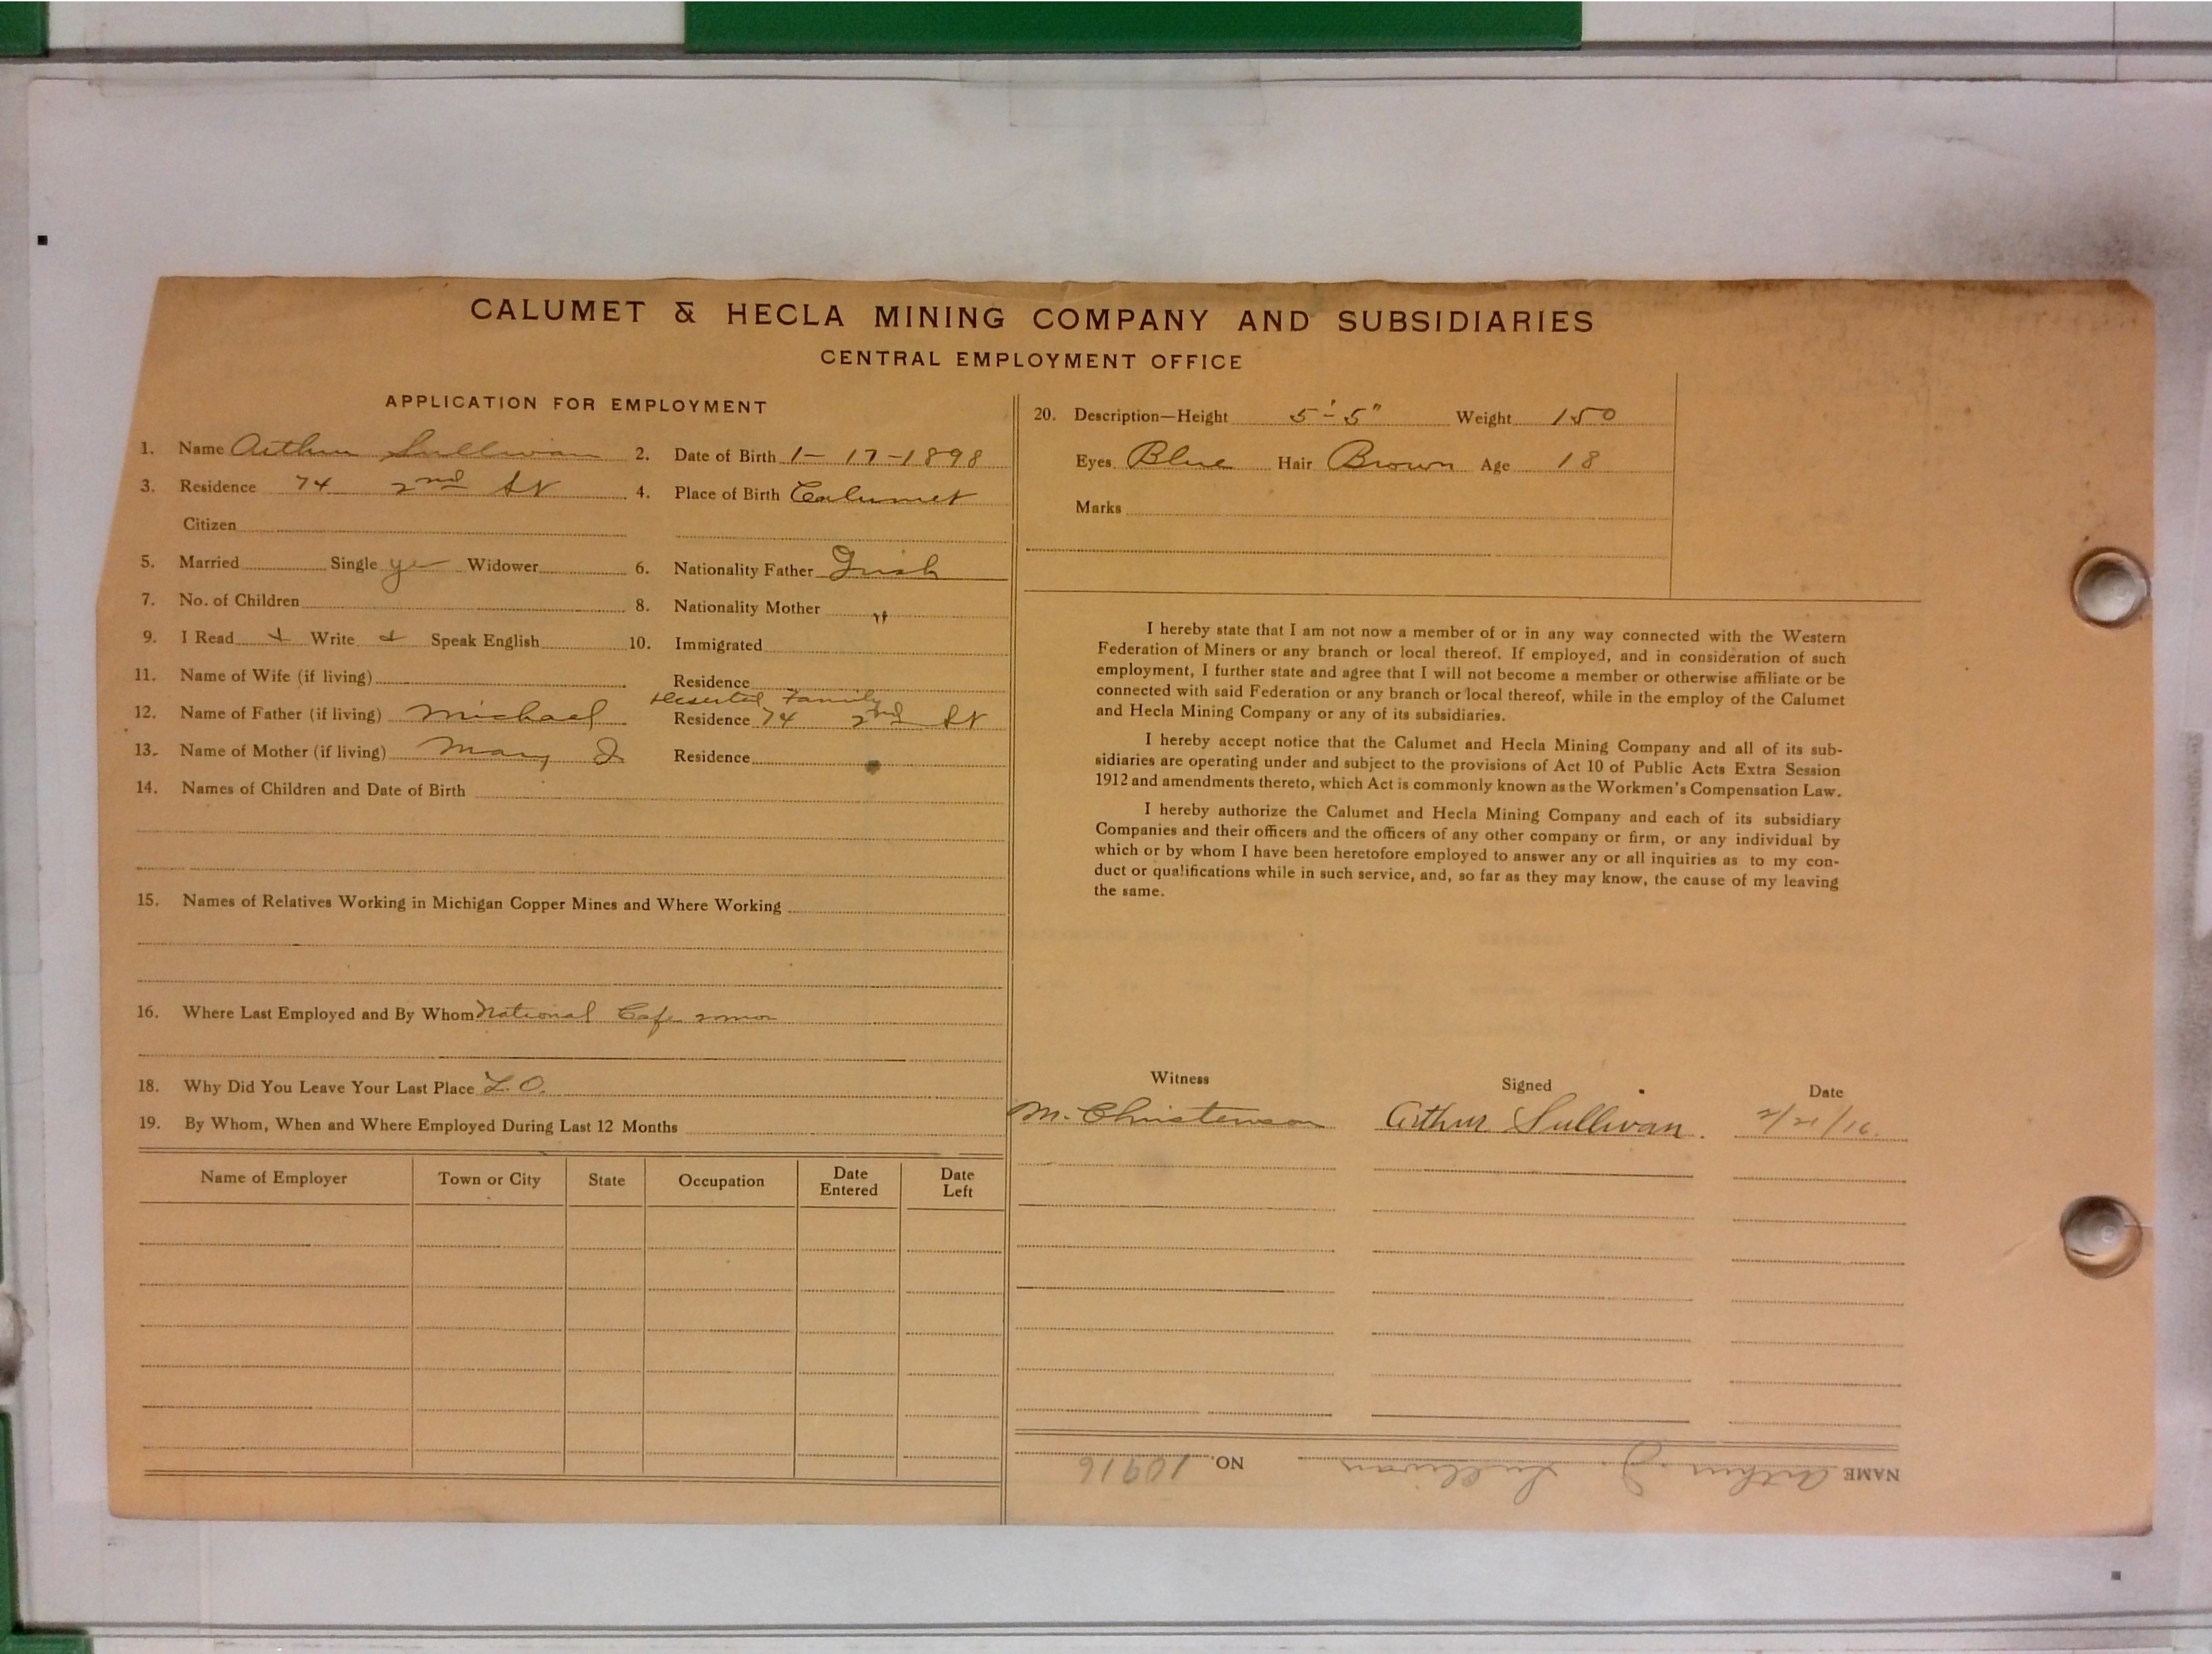 CALUMET & HECLA MINING COMPANY AND SUBSIDIARIES
CENTRAL EMPLOYMENT OFFICE
APPLICATION FOR EMPLOYMENT
1. Name Arthur Sullivan 2. Date of Birth 1-17-1898
3. Residence 74 2nd St 4. Place of Birth Calumet
Citizen
5. Married Single ye Widower 6. Nationality Father Irish
7. No. of Children 8. Nationality Mother "
9. I Read Write Speak English 10. Immigrated
11. Name of Wife (if living) Residence
Deserted Family
12. Name of Father (if living) Michael Residence 74 2nd St
13. Name of Mother (if living) Mary Residence
14. Names of Children and Date of Birth
15. Names of Relatives Working in Michigan Copper Mines and Where Working
16. Where Last Employed and By Whom National Cafe 2 mos
18. Why Did You Leave Your Last Place L.O.
19. By Whom, When and Where Employed During Last 12 Months
Name of Employer Town or City State Occupation Date Entered Date Left
20. Description—Height 5'-5" Weight 150
Eyes Blue Hair Brown Age 18
Marks
I hereby state that I am not now a member of or in any way connected with the Western
Federation of Miners or any branch or local thereof. If employed, and in consideration of such
employment, I further state and agree that I will not become a member or otherwise affiliate or be
connected with said Federation or any branch or local thereof, while in the employ of the Calumet
and Hecla Mining Company or any of its subsidiaries.
I hereby accept notice that the Calumet and Hecla Mining Company and all of its sub-
sidiaries are operating under and subject to the provisions of Act 10 of Public Acts Extra Session
1912 and amendments thereto, which Act is commonly known as the Workmen's Compensation Law.
I hereby authorize the Calumet and Hecla Mining Company and each of its subsidiary
Companies and their officers and the officers of any other company or firm, or any individual by
which or by whom I have been heretofore employed to answer any or all inquiries as to my con-
duct or qualifications while in such service, and, so far as they may know, the cause of my leaving
the same.
Witness Signed Date
M. Christenson Arthur Sullivan. 2/21/16.
NAME Arthur J. Sullivan NO. 10916